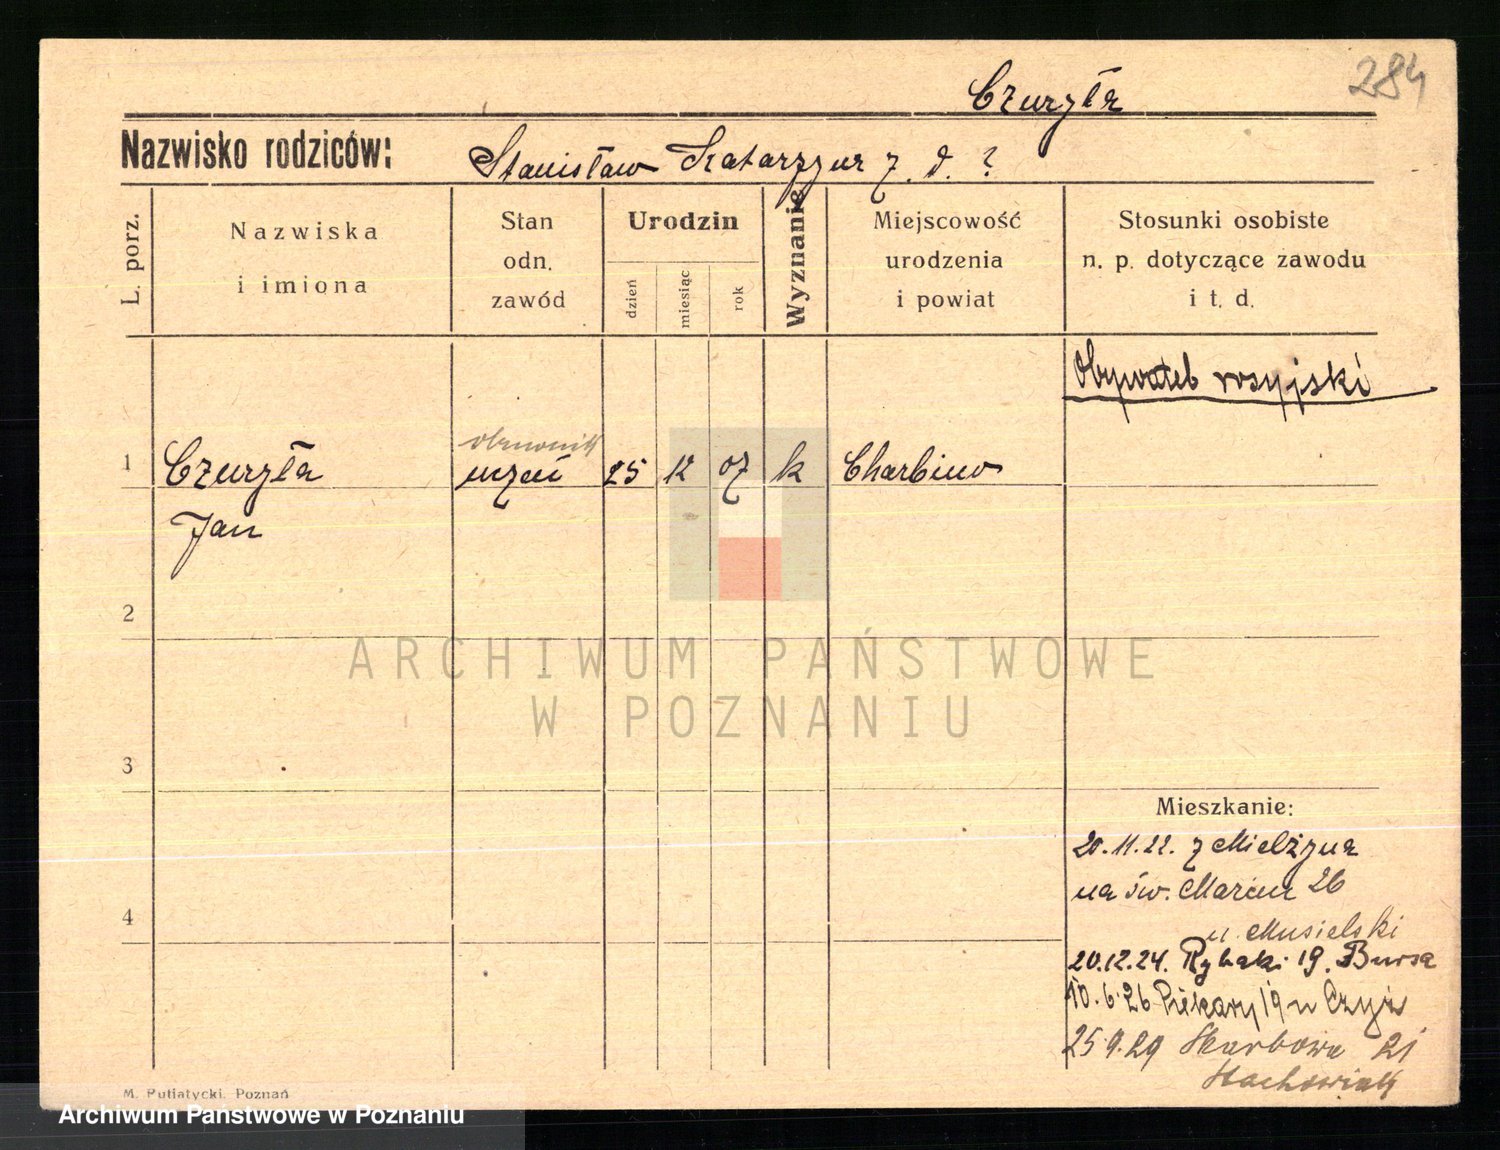 284
Czuryła
Nazwisko rodziców:
Stanisław Katarzyna z. d. ?
L. porz.
Nazwiska
i imiona
Stan
odn.
zawód
Urodzin
dzień
miesiąc
rok
Wyznanie
Miejscowość
urodzenia
i powiat
Stosunki osobiste
n. p. dotyczące zawodu
i t. d.
Obywateb rosyjski
1
Czuryła
Jan
uczeń
25
12
07
k
Charbinw
2
ARCHIWUM PAŃSTWOWE
W POZNANIU
3
Mieszkanie:
20.11.22. z Mielżyna
na św. Marcin 26
u. Musielski
4
20.12.24. Rybaki 19. Bursa
10.6.26 Piekary 19 u Czyż
25.9.29 Skarbowa 21
Stachowiak
M. Putiatycki. Poznań
Archiwum Państwowe w Poznaniu